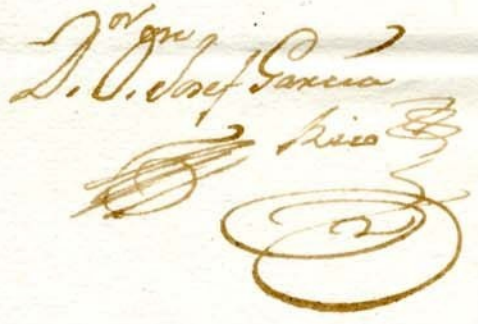 D.or D. Josef Garcia
Rico